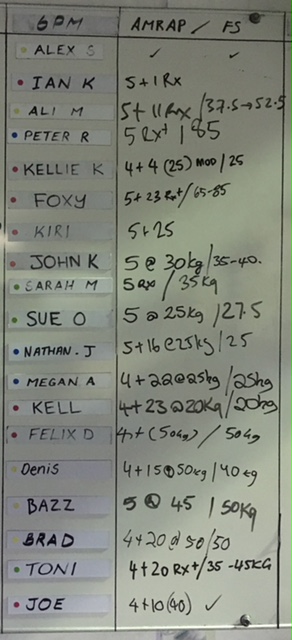 6PM AMRAP / FS
ALEX S ✓ ✓
IAN K 5+1 Rx
ALI M 5+11 Rx / 37.5→52.5
PETER R 5 Rx+ | 85
KELLIE K 4+4 (25) MOD / 25
FOXY 5+23 Rx+/65-85
KIRI 5+25
JOHN K 5 @ 30kg/35-40.
SARAH M 5 Rx / 35kg
SUE O 5 @ 25kg /27.5
NATHAN.J 5+16 @25kg / 25
MEGAN A 4+22@25kg /25kg
KELL 4+23 @20kg/20kg
FELIX D 4+(50kg) / 50kg
Denis 4+15@50kg/40kg
BAZZ 5 @ 45 | 50kg
BRAD 4+20 @ 50/50
TONI 4+20 RX+/35-45KG
JOE 4+10(40) ✓